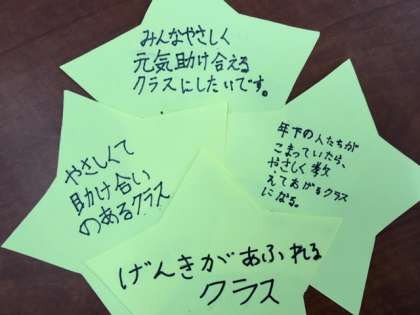 みんなやさしく
元気助け合える
クラスにしたいです。
やさしくて
助け合い
のあるクラス
年下の人たちが
こまっていたら、
やさしく教
えてあげるクラス
になる。
げんきがあふれる
クラス